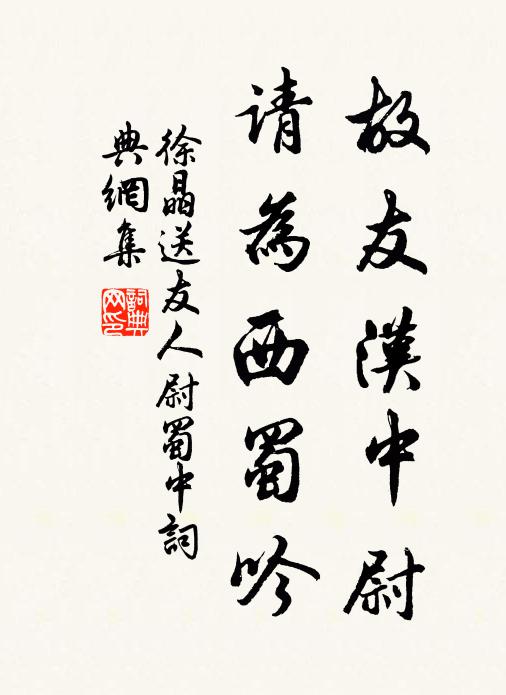 故友漢中尉
请為西蜀吟
徐晶送友人尉蜀中詞
典網集
詞典網印